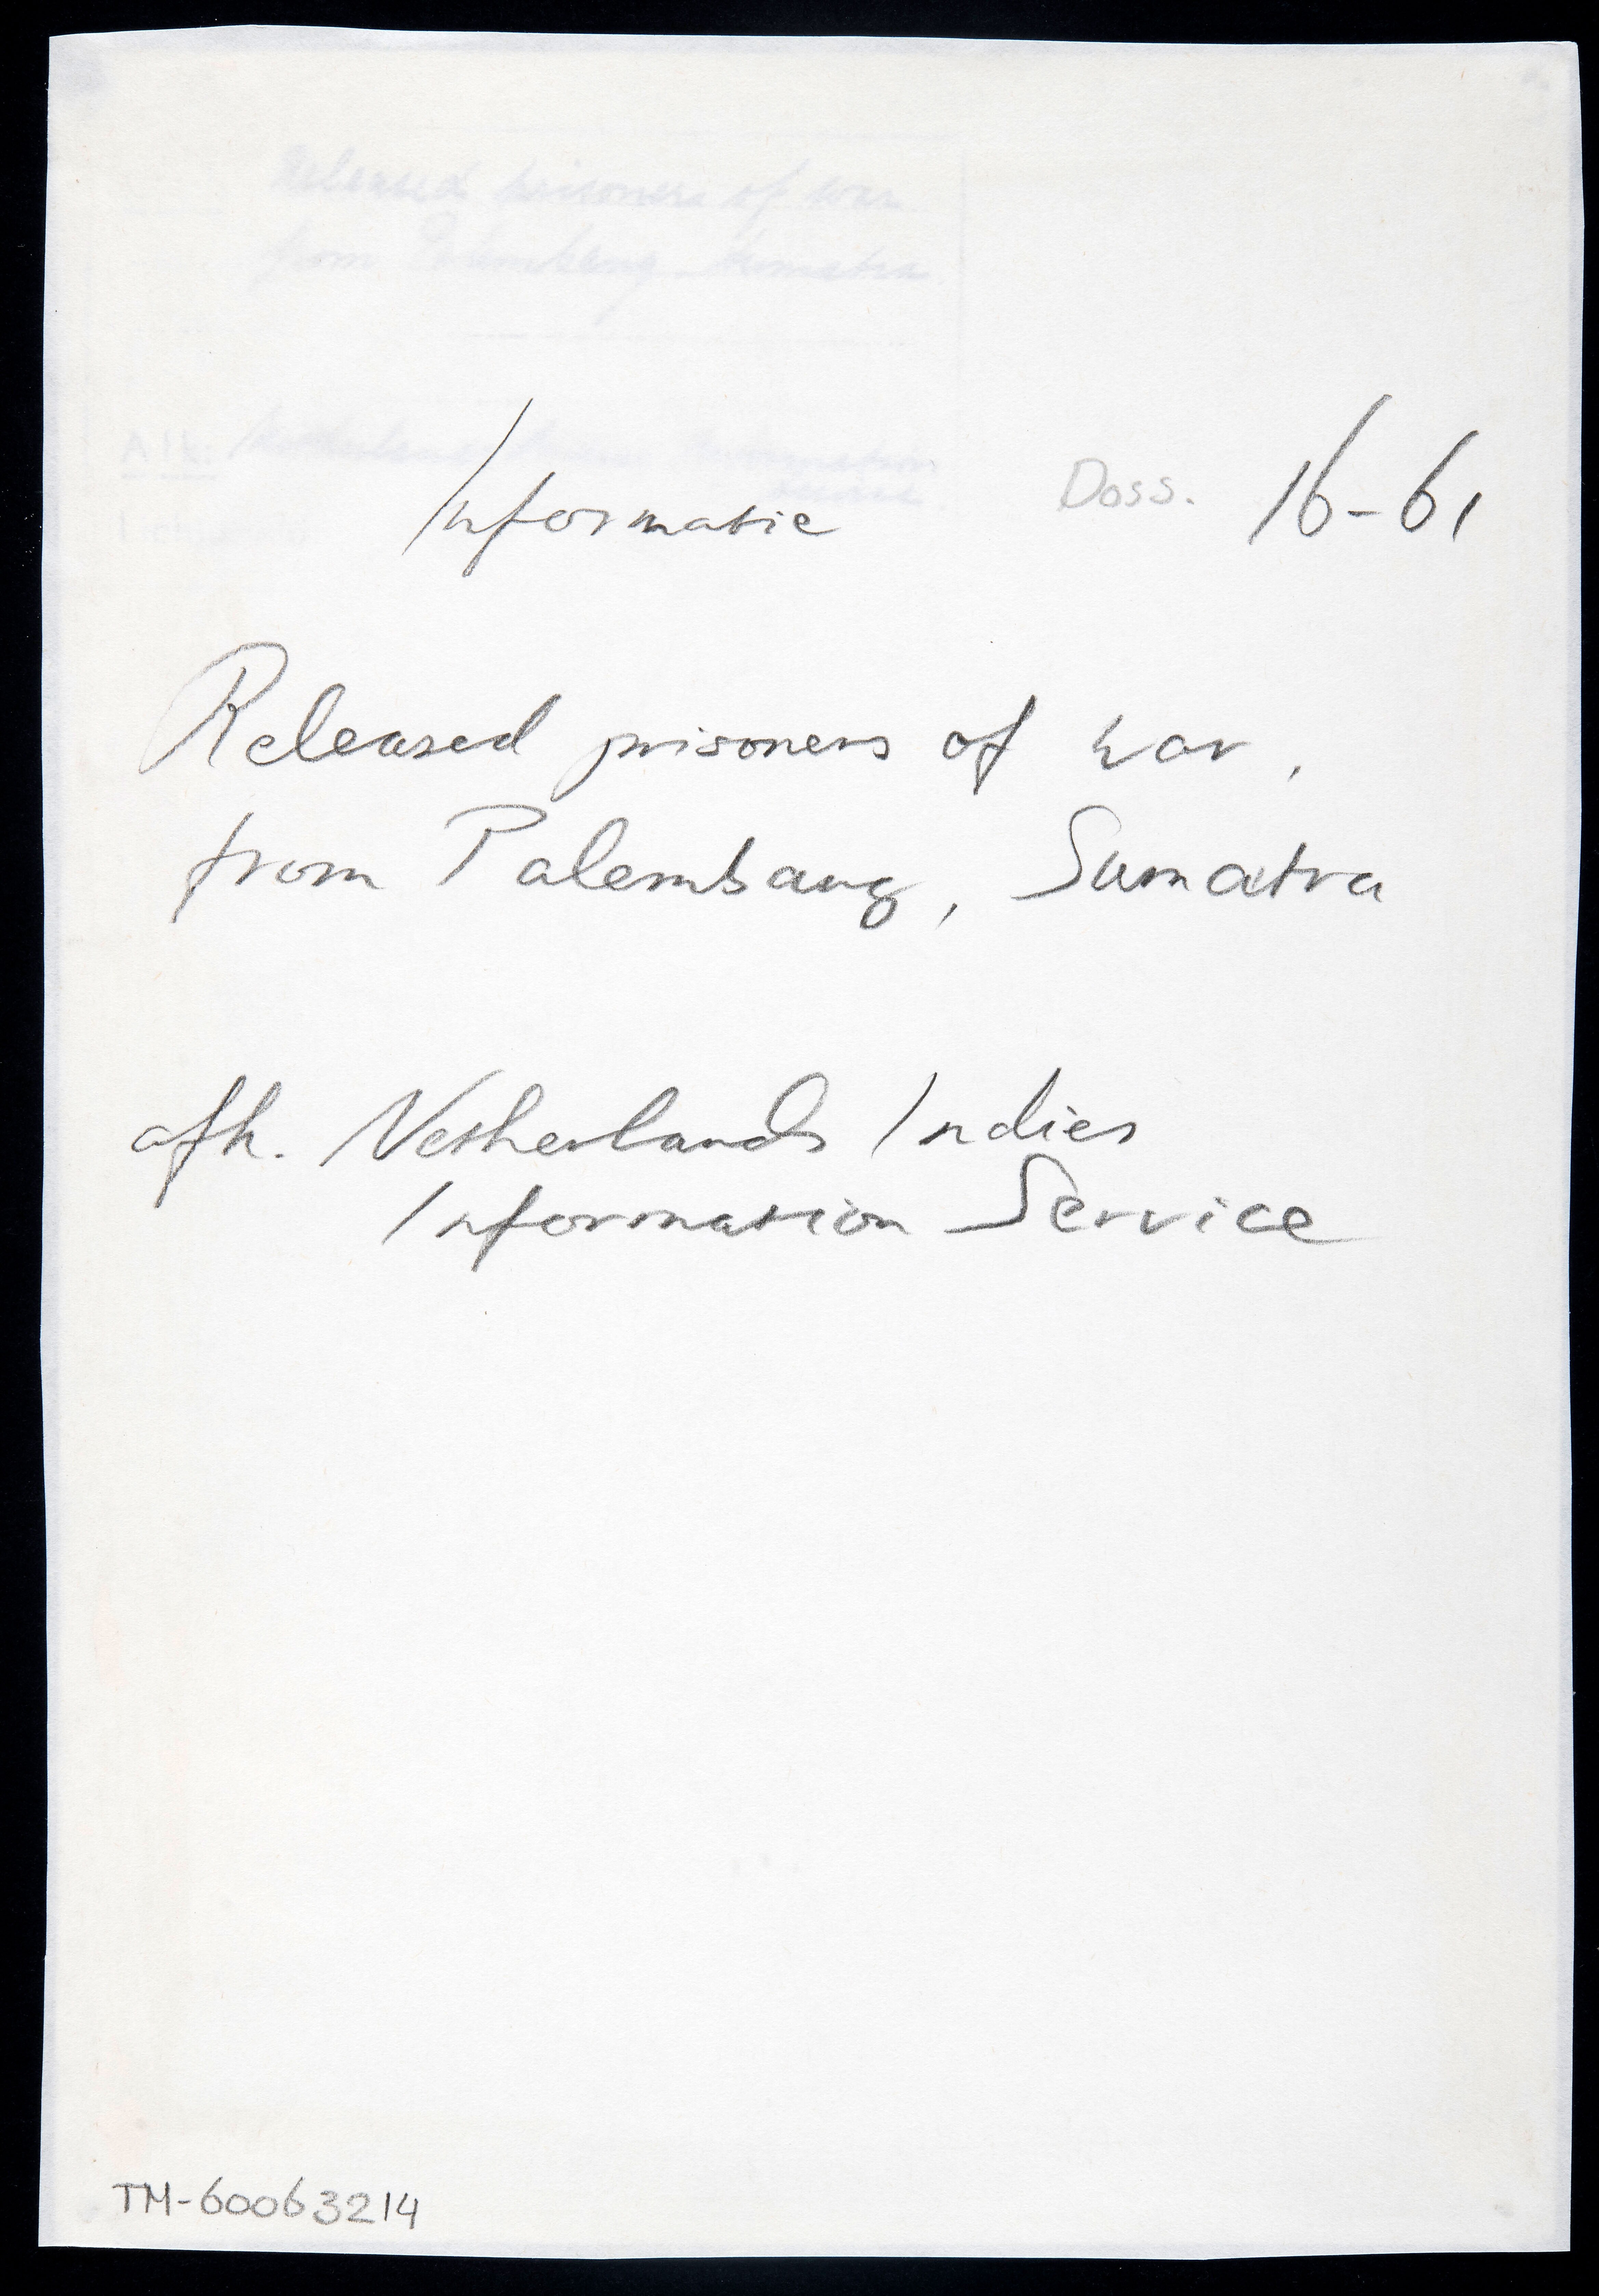 Released prisoners of war
from Palembang Sumatra.
Informatie Doss. 16-61
Released prisoners of war,
from Palembang, Sumatra
afk. Netherlands Indies
Information Service
TM-60063214